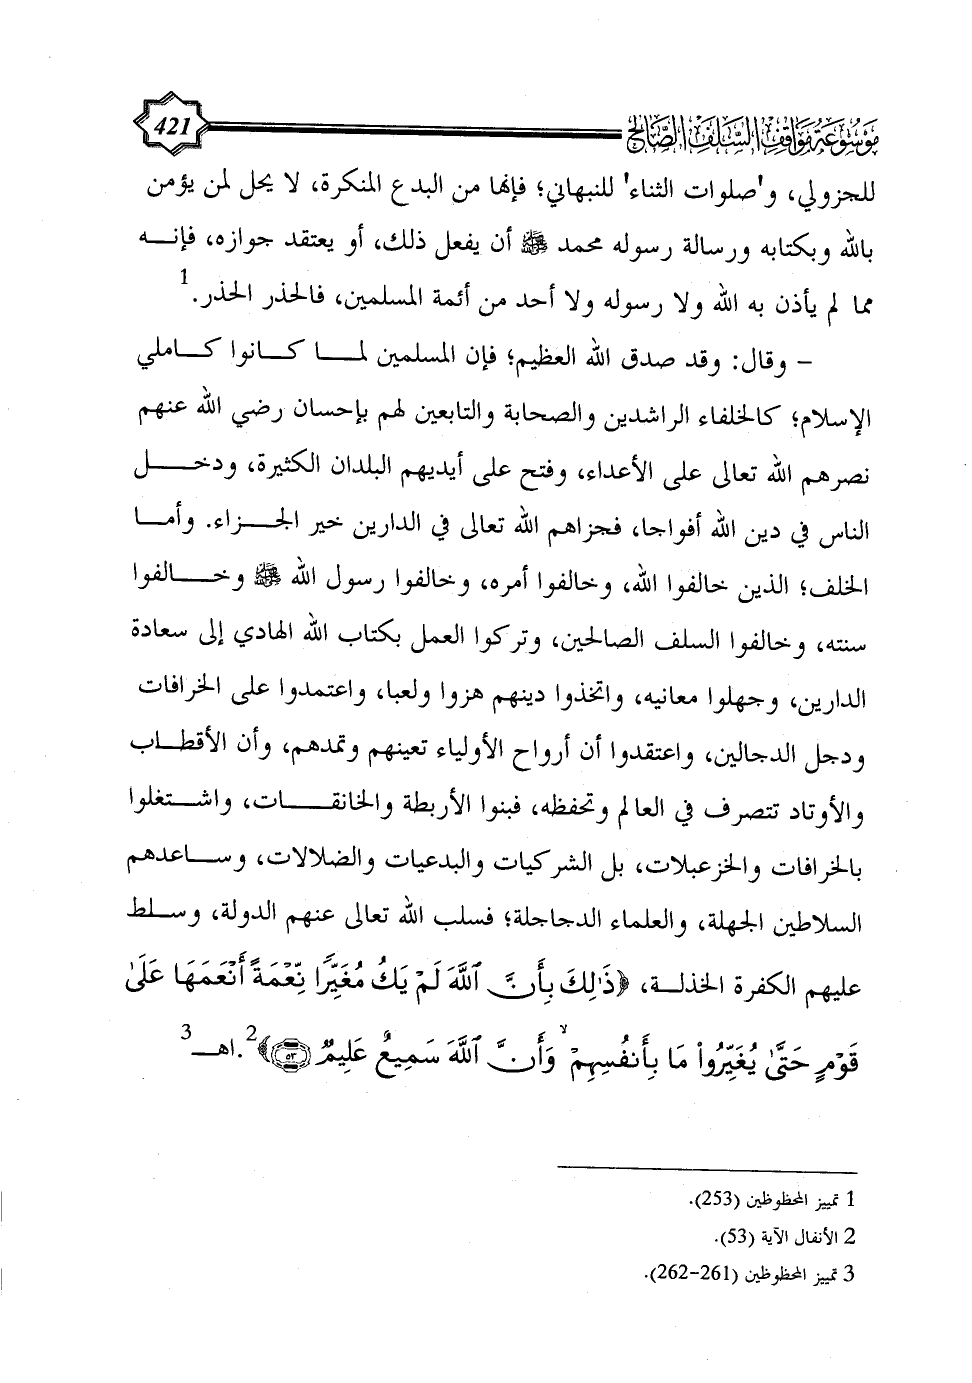 موسوعة مواقف السلف الصالح
421
للجزولي، و'صلوات الثناء' للنبهاني؛ فإنها من البدع المنكرة، لا يحل لمن يؤمن
بالله وبكتابه ورسالة رسوله محمد ﷺ أن يفعل ذلك، أو يعتقد جوازه، فإنـــه
مما لم يأذن به الله ولا رسوله ولا أحد من أئمة المسلمين، فالحذر الحذر.1
– وقال: وقد صدق الله العظيم؛ فإن المسلمين لمـــا كـــانوا كـــاملي
الإسلام؛ كالخلفاء الراشدين والصحابة والتابعين لهم بإحسان رضي الله عنهم
نصرهم الله تعالى على الأعداء، وفتح على أيديهم البلدان الكثيرة، ودخـــل
الناس في دين الله أفواجا، فجزاهم الله تعالى في الدارين خير الجـــزاء. وأمـــا
الخلف؛ الذين خالفوا الله، وخالفوا أمره، وخالفوا رسول الله ﷺ وخـــالفوا
سنته، وخالفوا السلف الصالحين، وتركوا العمل بكتاب الله الهادي إلى سعادة
الدارين، وجهلوا معانيه، واتخذوا دينهم هزوا ولعبا، واعتمدوا على الخرافات
ودجل الدجالين، واعتقدوا أن أرواح الأولياء تعينهم وتمدهم، وأن الأقطـاب
والأوتاد تتصرف في العالم وتحفظه، فبنوا الأربطة والخانقـــات، واشـــتغلوا
بالخرافات والخزعبلات، بل الشركيات والبدعيات والضلالات، وســـاعدهم
السلاطين الجهلة، والعلماء الدجاجلة؛ فسلب الله تعالى عنهم الدولة، وســلط
عليهم الكفرة الخذلــة، ﴿ذَٰلِكَ بِأَنَّ ٱللَّهَ لَمْ يَكُ مُغَيِّرًا نِّعْمَةً أَنْعَمَهَا عَلَىٰ
قَوْمٍ حَتَّىٰ يُغَيِّرُوا۟ مَا بِأَنفُسِهِمْ ۙ وَأَنَّ ٱللَّهَ سَمِيعٌ عَلِيمٌ ٥٣﴾2.اهـــ3
1 تمييز المحظوظين (253).
2 الأنفال الآية (53).
3 تمييز المحظوظين (261-262).